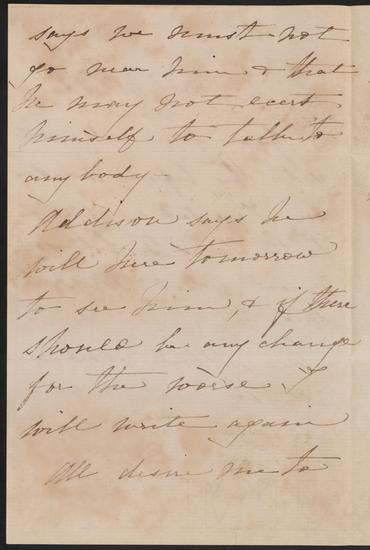 says we must not
go near him & that
he may not exert
himself to talk to
any body -
Addison says he
will here tomorrow
to see him, & if there
should be any change
for the worse I
will write again
All desire me to